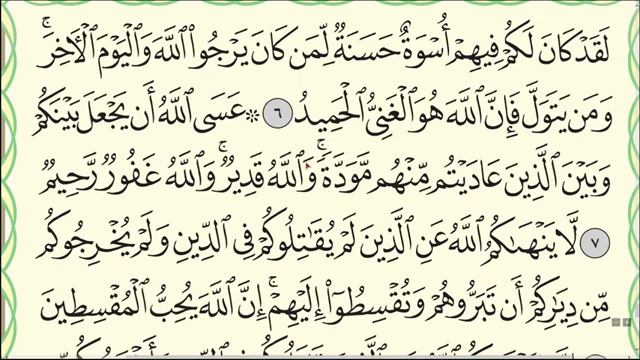 لَقَدْ كَانَ لَكُمْ فِيهِمْ أُسْوَةٌ حَسَنَةٌ لِّمَن كَانَ يَرْجُوا۟ ٱللَّهَ وَٱلْيَوْمَ ٱلْأَخِرَ ۚ
وَمَن يَتَوَلَّ فَإِنَّ ٱللَّهَ هُوَ ٱلْغَنِىُّ ٱلْحَمِيدُ ٦ ۞ عَسَى ٱللَّهُ أَن يَجْعَلَ بَيْنَكُمْ
وَبَيْنَ ٱلَّذِينَ عَادَيْتُم مِّنْهُم مَّوَدَّةً ۚ وَٱللَّهُ قَدِيرٌ ۚ وَٱللَّهُ غَفُورٌ رَّحِيمٌ
٧ لَّا يَنْهَىٰكُمُ ٱللَّهُ عَنِ ٱلَّذِينَ لَمْ يُقَـٰتِلُوكُمْ فِى ٱلدِّينِ وَلَمْ يُخْرِجُوكُم
مِّن دِيَـٰرِكُمْ أَن تَبَرُّوهُمْ وَتُقْسِطُوٓا۟ إِلَيْهِمْ ۚ إِنَّ ٱللَّهَ يُحِبُّ ٱلْمُقْسِطِينَ